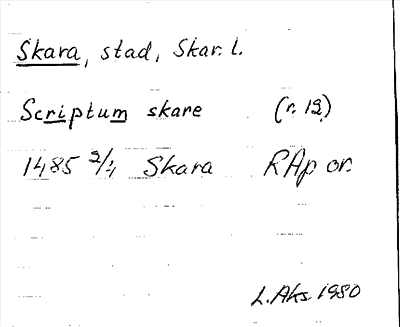 Skara, stad, Skar. l.
Scriptum skare (r. 12)
1485 2/4 Skara RAp or.
L. Aks 1980